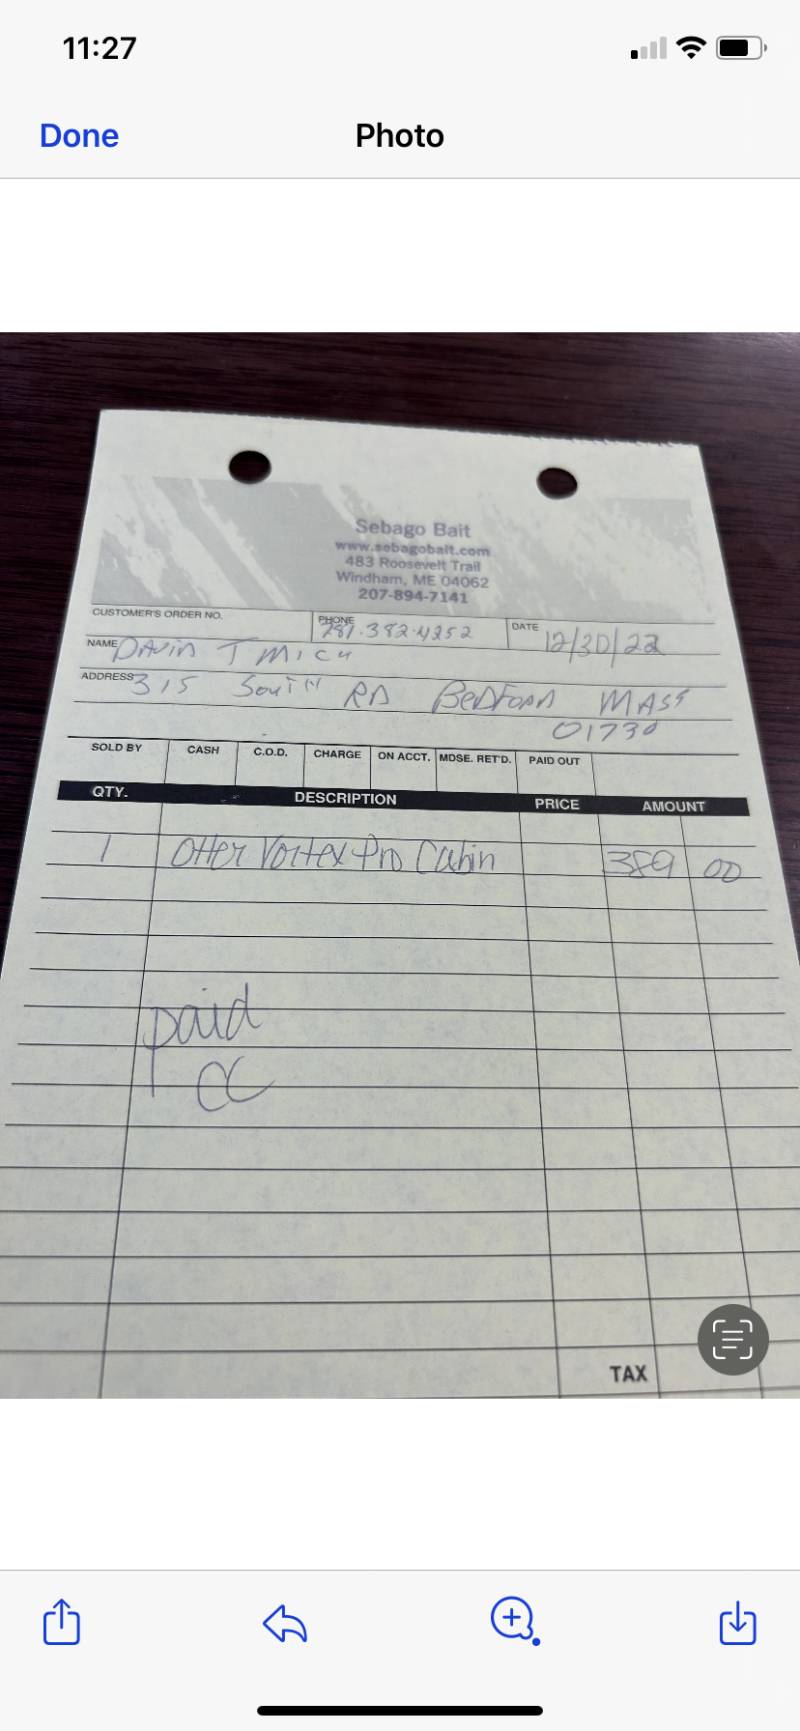 11:27
Done
Photo
Sebago Bait
www.sebagobait.com
483 Roosevelt Trail
Windham, ME 04062
207-894-7141
CUSTOMER'S ORDER NO. PHONE 781.382.4252 DATE 12/30/22
NAME DAVID T
ADDRESS 315 SOUTH RD BEDFORD MASS
01730
SOLD BY CASH C.O.D. CHARGE ON ACCT. MDSE. RET'D. PAID OUT
QTY. DESCRIPTION PRICE AMOUNT
1 Otter Vortex Pro Cabin 389 00
paid
CC
TAX